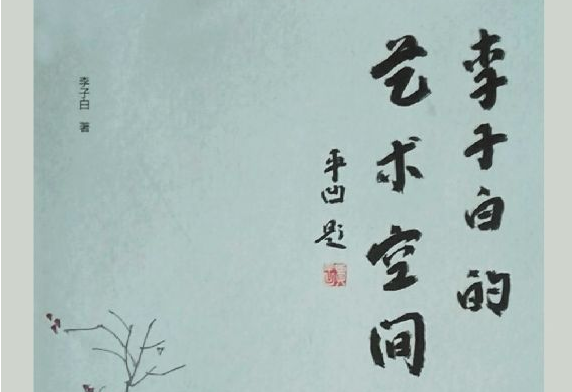 李子白的
艺术空间
平凹题
李子白 著